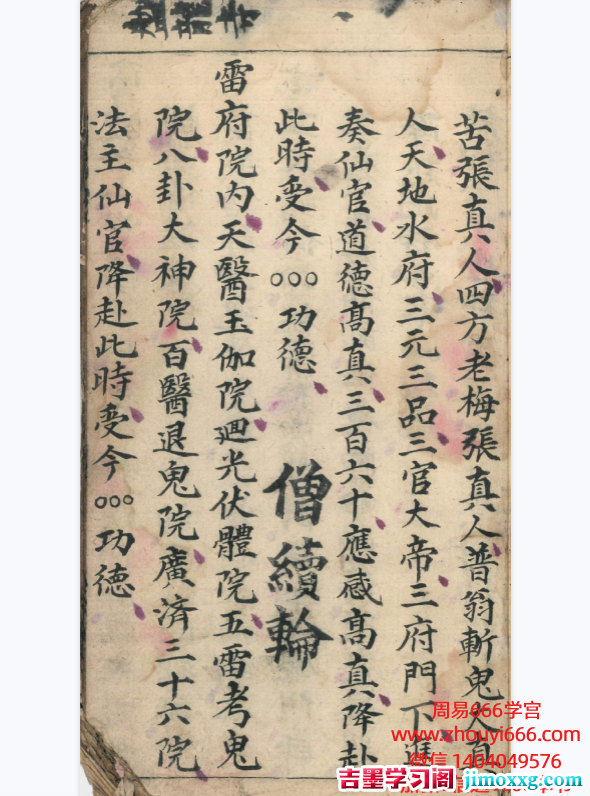 苦張真人四方老梅張真人普翁斬鬼人真
人天地水府三元三品三官大帝三府門下進
奏仙官道德高真三百六十應感高真降赴
此時受今○○○功德 僧續輪
雷府院內天醫玉伽院廻光伏體院五雷考鬼
院八卦大神院百醫退鬼院廣済三十六院
法主仙官降赴此時受今○○○功德
周易666学宫
www.zhouyi666.com
微信 1404049576
吉墨学习阁 jimoxxg.com